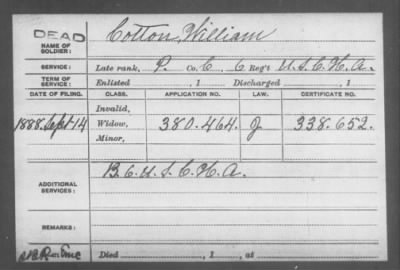 DEAD Cotton, William
NAME OF SOLDIER:
SERVICE: Late rank, P. Co. C, 6 Reg't U.S.C.H.A.
TERM OF SERVICE: Enlisted , 1 Discharged , 1
DATE OF FILING. CLASS. APPLICATION NO. LAW. CERTIFICATE NO.
Invalid,
1888. Sept 14 Widow, 380.464. J 338.652.
Minor,
B. 6. U.S.C.H.A.
ADDITIONAL SERVICES:
REMARKS:
Died , 1 , at